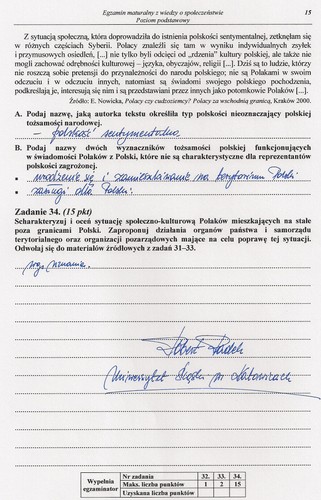 Egzamin maturalny z wiedzy o społeczeństwie 15
Poziom podstawowy
Z sytuacją społeczną, która doprowadziła do istnienia polskości sentymentalnej, zetknęłam się
w różnych częściach Syberii. Polacy znaleźli się tam w wyniku indywidualnych zsyłek
i przymusowych osiedleń, [...] nie tylko byli odcięci od „rdzenia” kultury polskiej, ale także nie
mogli zachować odrębności kulturowej – języka, obyczajów, religii [...]. Dziś są to ludzie, którzy
nie roszczą sobie pretensji do przynależności do narodu polskiego; nie są Polakami w swoim
odczuciu i w odczuciu innych, natomiast są świadomi swojego polskiego pochodzenia,
podkreślają je, interesują się nim i są przedstawiani przez innych jako potomkowie Polaków [...].
Źródło: E. Nowicka, Polacy czy cudzoziemcy? Polacy za wschodnią granicą, Kraków 2000.
A. Podaj nazwę, jaką autorka tekstu określiła typ polskości nieoznaczający polskiej
tożsamości narodowej.
– polskość sentymentalna
B. Podaj nazwy dwóch wyznaczników tożsamości polskiej funkcjonujących
w świadomości Polaków z Polski, które nie są charakterystyczne dla reprezentantów
polskości zagrożonej.
• urodzenie się i zamieszkiwanie na terytorium Polski
• zasługi dla Polski
Zadanie 34. (15 pkt)
Scharakteryzuj i oceń sytuację społeczno-kulturową Polaków mieszkających na stałe
poza granicami Polski. Zaproponuj działania organów państwa i samorządu
terytorialnego oraz organizacji pozarządowych mające na celu poprawę tej sytuacji.
Odwołaj się do materiałów źródłowych z zadań 31–33.
wg. uznania.
Uniwersytet Śląski w Katowicach
Wypełnia Nr zadania 32. 33. 34.
egzaminator Maks. liczba punktów 1 2 15
Uzyskana liczba punktów